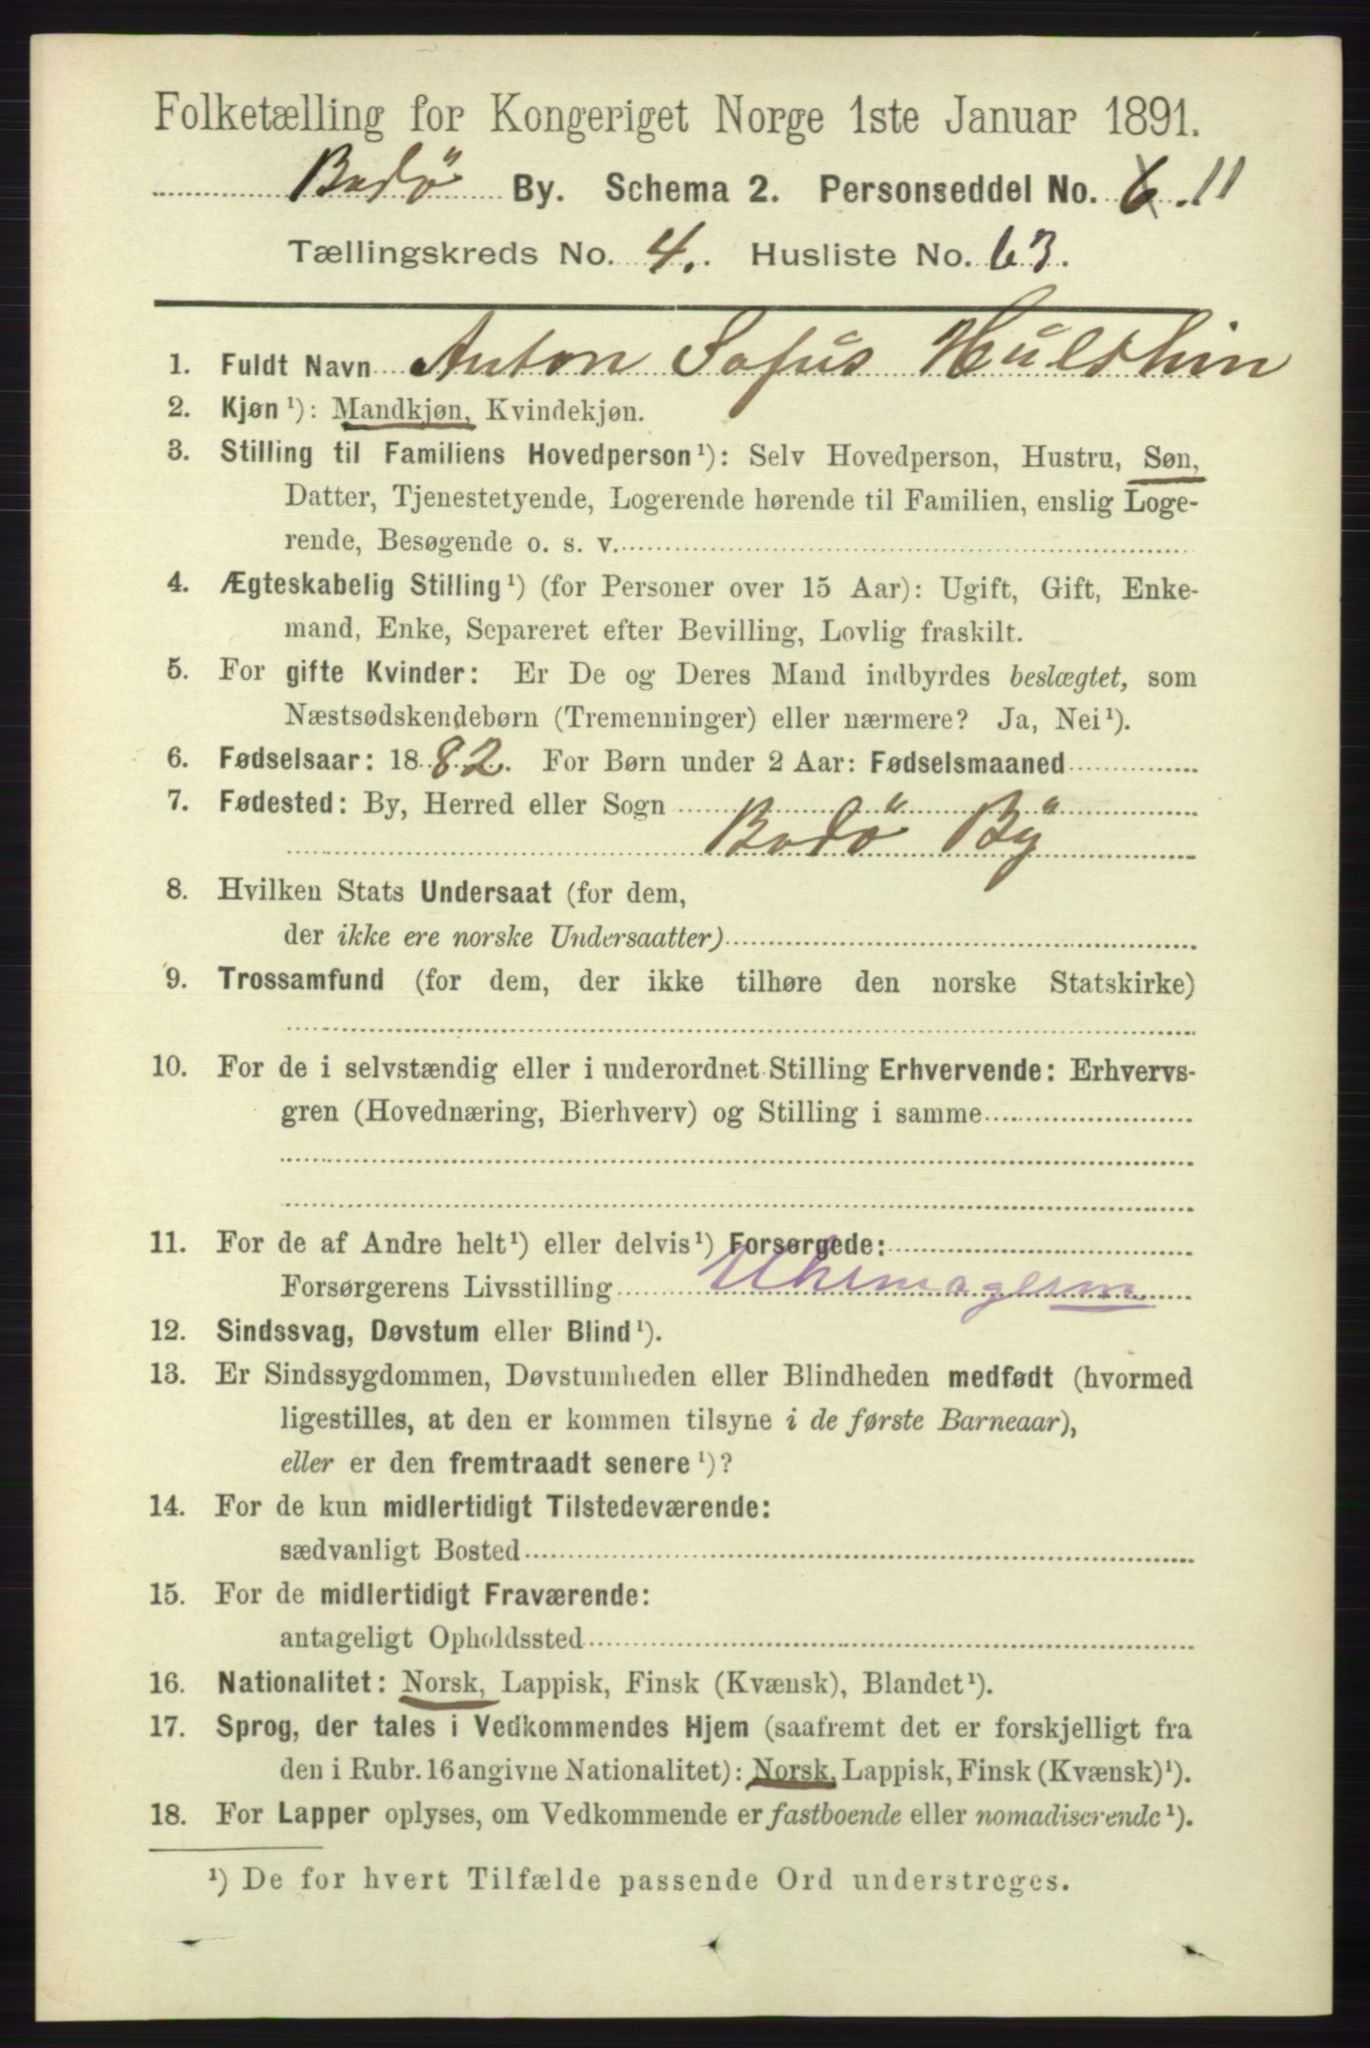 Folketælling for Kongeriget Norge 1ste Januar 1891.
Bodö By. Schema 2. Personseddel No. 6. 11
Tællingskreds No. 4. Husliste No. 63.
1. Fuldt Navn Anton Sofus Hülthin
2. Kjøn ¹): Mandkjøn, Kvindekjøn.
3. Stilling til Familiens Hovedperson ¹): Selv Hovedperson, Hustru, Søn,
Datter, Tjenestetyende, Logerende hørende til Familien, enslig Loge-
rende, Besøgende o. s. v.
4. Ægteskabelig Stilling ¹) (for Personer over 15 Aar): Ugift, Gift, Enke-
mand, Enke, Separeret efter Bevilling, Lovlig fraskilt.
5. For gifte Kvinder: Er De og Deres Mand indbyrdes beslægtet, som
Næstsødskendebørn (Tremenninger) eller nærmere? Ja, Nei ¹).
6. Fødselsaar: 1882. For Børn under 2 Aar: Fødselsmaaned
7. Fødested: By, Herred eller Sogn
Bodö Bÿ
8. Hvilken Stats Undersaat (for dem,
der ikke ere norske Undersaatter)
9. Trossamfund (for dem, der ikke tilhøre den norske Statskirke)
10. For de i selvstændig eller i underordnet Stilling Erhvervende: Erhvervs-
gren (Hovednæring, Bierhverv) og Stilling i samme
11. For de af Andre helt ¹) eller delvis ¹) Forsørgede:
Forsørgerens Livsstilling Uhrmagerm
12. Sindssvag, Døvstum eller Blind ¹).
13. Er Sindssygdommen, Døvstumheden eller Blindheden medfødt (hvormed
ligestilles, at den er kommen tilsyne i de første Barneaar),
eller er den fremtraadt senere ¹)?
14. For de kun midlertidigt Tilstedeværende:
sædvanligt Bosted
15. For de midlertidigt Fraværende:
antageligt Opholdssted
16. Nationalitet: Norsk, Lappisk, Finsk (Kvænsk), Blandet ¹).
17. Sprog, der tales i Vedkommendes Hjem (saafremt det er forskjelligt fra
den i Rubr. 16 angivne Nationalitet): Norsk, Lappisk, Finsk (Kvænsk) ¹).
18. For Lapper oplyses, om Vedkommende er fastboende eller nomadiserende ¹).
¹) De for hvert Tilfælde passende Ord understreges.